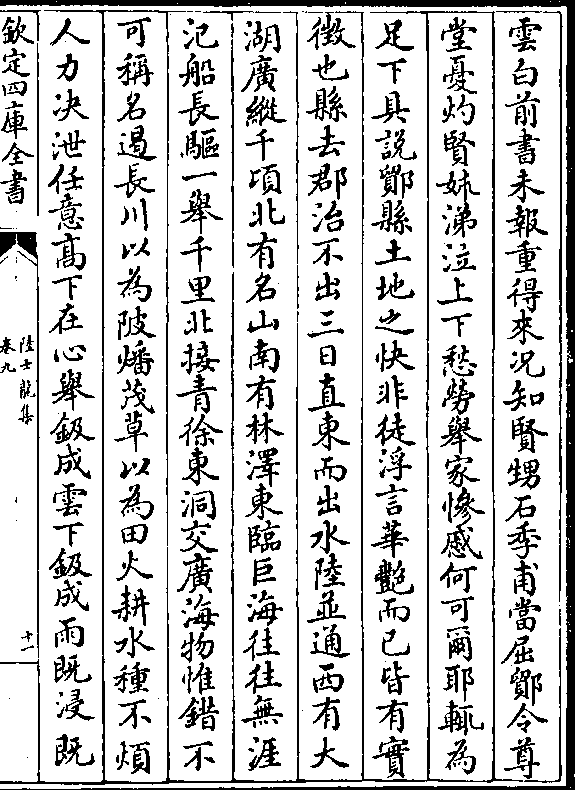 雲白前書未報重得來況知賢甥石季甫當屈鄮令尊
堂憂灼賢姊涕泣上下愁勞舉家慘慼何可爾耶輒為
足下具説鄮縣土地之快非徒浮言華艶而已皆有實
徴也縣去郡治不出三日直東而出水陸並通西有大
湖廣縱千頃北有名山南有林澤東臨巨海往往無涯
汜船長驅一舉千里北接青徐東洞交廣海物惟錯不
可稱名遏長川以為陂燔茂草以為田火耕水種不煩
人力决泄任意髙下在心舉鈒成雲下鈒成雨既浸既
欽定四庫全書
陸士龍集
卷九
十一